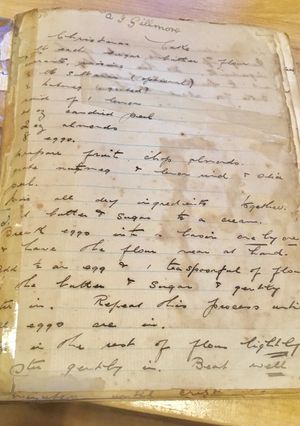 A J Gillmore
Christmas Cake
each sugar butter flour
currants, raisins
lb Sultanas (optional)
nutmeg
rind of 1 lemon
oz candied peel
oz almonds
8 eggs.
Prepare fruit, chop almonds.
grate nutmeg & lemon rind & slice
peel.
Mix all dry ingredients together.
butter & sugar to a cream.
Break eggs into a basin one by one
& have the flour near at hand.
Add ½ an egg & 1 teaspoonful of flour
the butter & sugar & gently
stir in. Repeat this process until
eggs are in.
in the rest of flour lightly
stir gently in. Beat well